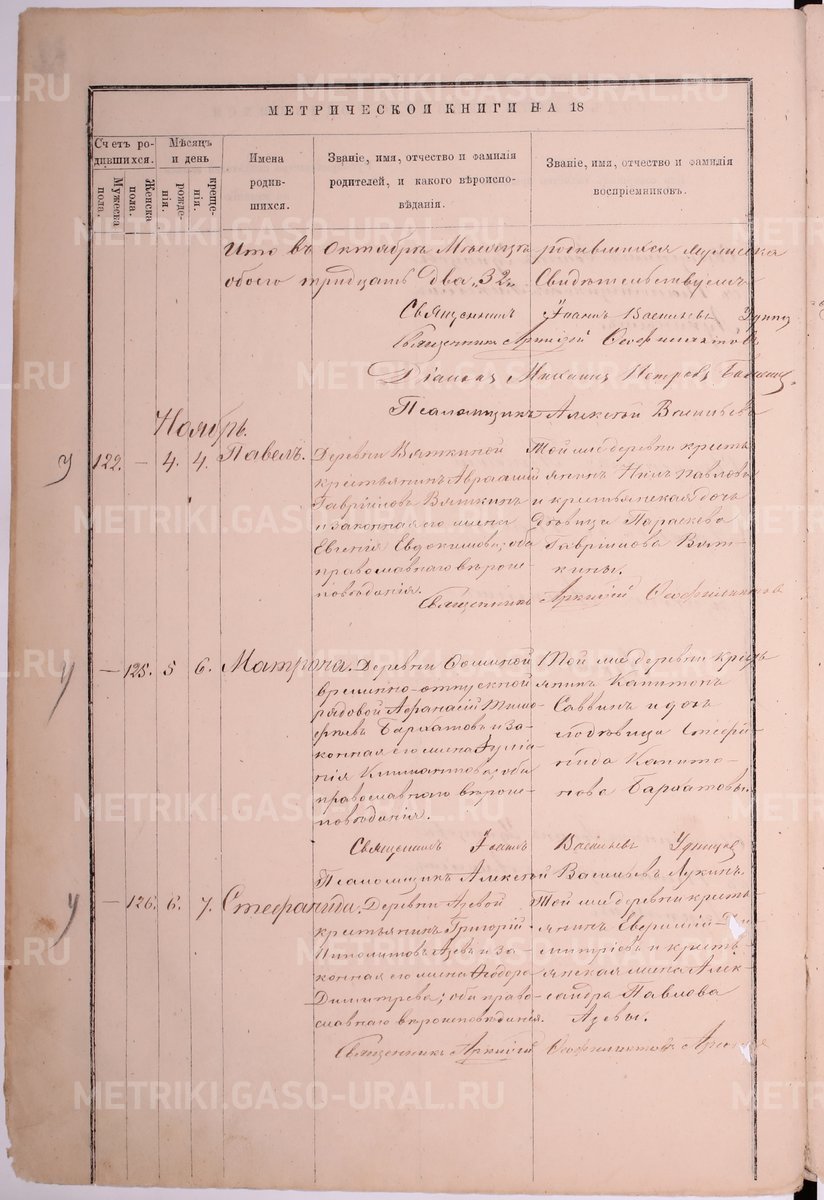 МЕТРИЧЕСКОЙ КНИГИ НА 18
Счетъ родившихся.
Мужеска пола.
Женска пола.
Мѣсяцъ и день
рожденія.
крещенія.
Имена родившихся.
Званіе, имя, отчество и фамилія родителей, и какого вѣроисповѣданія.
Званіе, имя, отчество и фамилія воспріемниковъ.
Что въ Октябрѣ Мѣсяцѣ родившихся
обоего тридцать два „32„ Свидѣтельствуемъ
Священникъ Іоаннъ Васильевъ
Священникъ
Діаконъ Михаилъ Петровъ
Псаломщикъ Алексѣй Васильевъ
Ноябрь.
у 122. — 4. 4. Павелъ.
Деревни Вяткиной
крестьянинъ Авраамій
Гавріиловъ Вяткинъ
и законная его жена
Евгенія Евдокимова, оба
православнаго вѣроис-
повѣданія.
Той же деревни кресть-
янинъ Нилъ Павловъ
и крестьянская дочь
дѣвица Параскева
Гавріилова Вят-
кины.
Священникъ
у — 125. 5 6. Матрона.
Деревни Фоминой
временно-отпускной
рядовой Афанасій Тимо-
феевъ Бархатовъ и за-
конная его жена Іуліа-
нія Климантова, оба
православнаго вѣроис-
повѣданія.
Той же деревни кресть-
янинъ Капитонъ
Саввинъ и дочь
его дѣвица Стефа-
нида Капито-
нова Бархатовы.
Священникъ Іоаннъ Васильевъ Удинцевъ
Псаломщикъ Алексѣй Васильевъ Лукинъ
у — 126. 6. 7. Стефанида.
Деревни Азевой
крестьянинъ Григорій
Иполитовъ Азевъ и за-
конная его жена Ѳеодора
Димитрева; оба право-
славнаго вѣроисповѣданія.
Той же деревни кресть-
янинъ Евфимій Ди-
митріевъ и кресть-
янская жена Алек-
сандра Павлова
Азевы.
Священникъ
METRIKI.GASO-URAL.RU